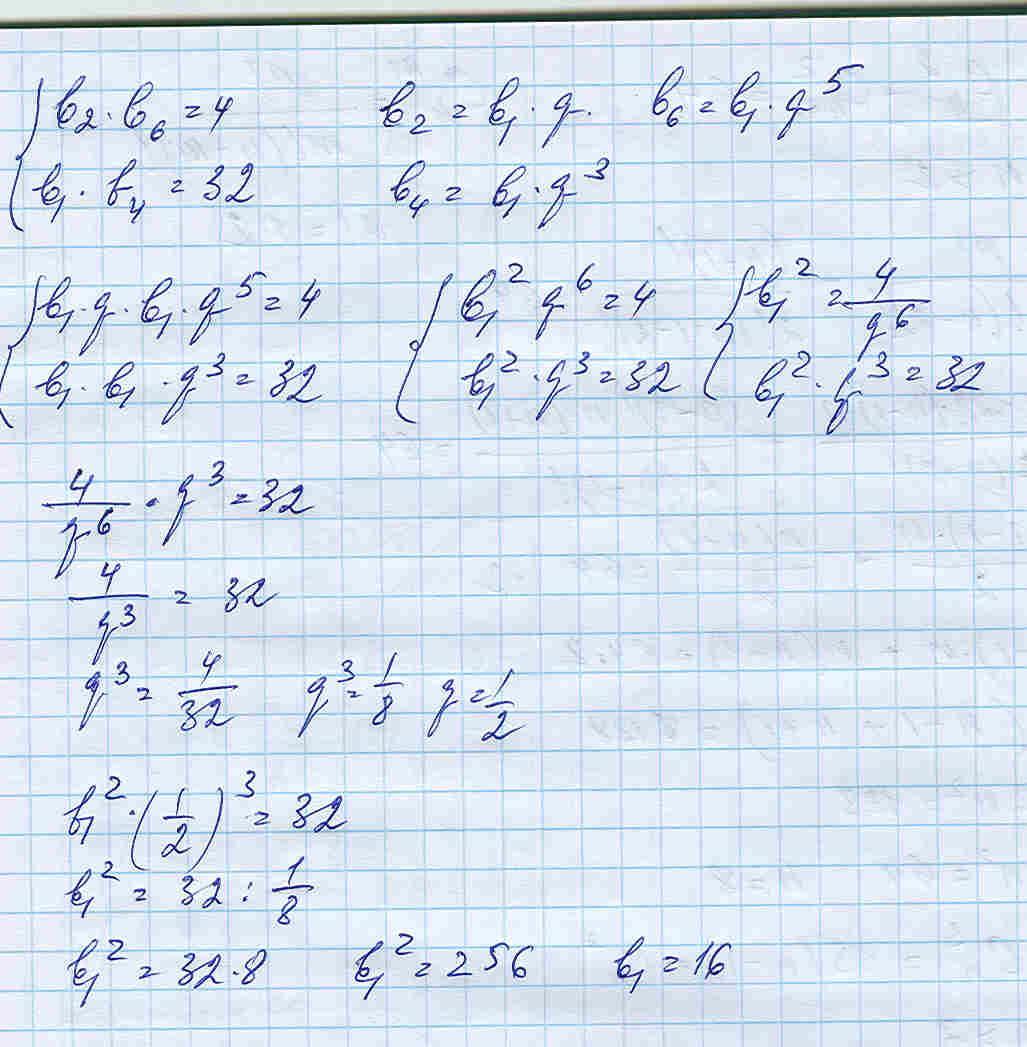 { b₂ · b₆ = 4    b₂ = b₁ · q.    b₆ = b₁ · q⁵
{ b₁ · b₄ = 32    b₄ = b₁ · q³
{ b₁ · q · b₁ · q⁵ = 4    { b₁² q⁶ = 4    { b₁² = 4/q⁶
{ b₁ · b₁ · q³ = 32    { b₁² · q³ = 32    { b₁² · q³ = 32
4/q⁶ · q³ = 32
4/q³ = 32
q³ = 4/32    q³ = 1/8    q = 1/2
b₁² · (1/2)³ = 32
b₁² = 32 : 1/8
b₁² = 32 · 8    b₁² = 256    b₁ = 16